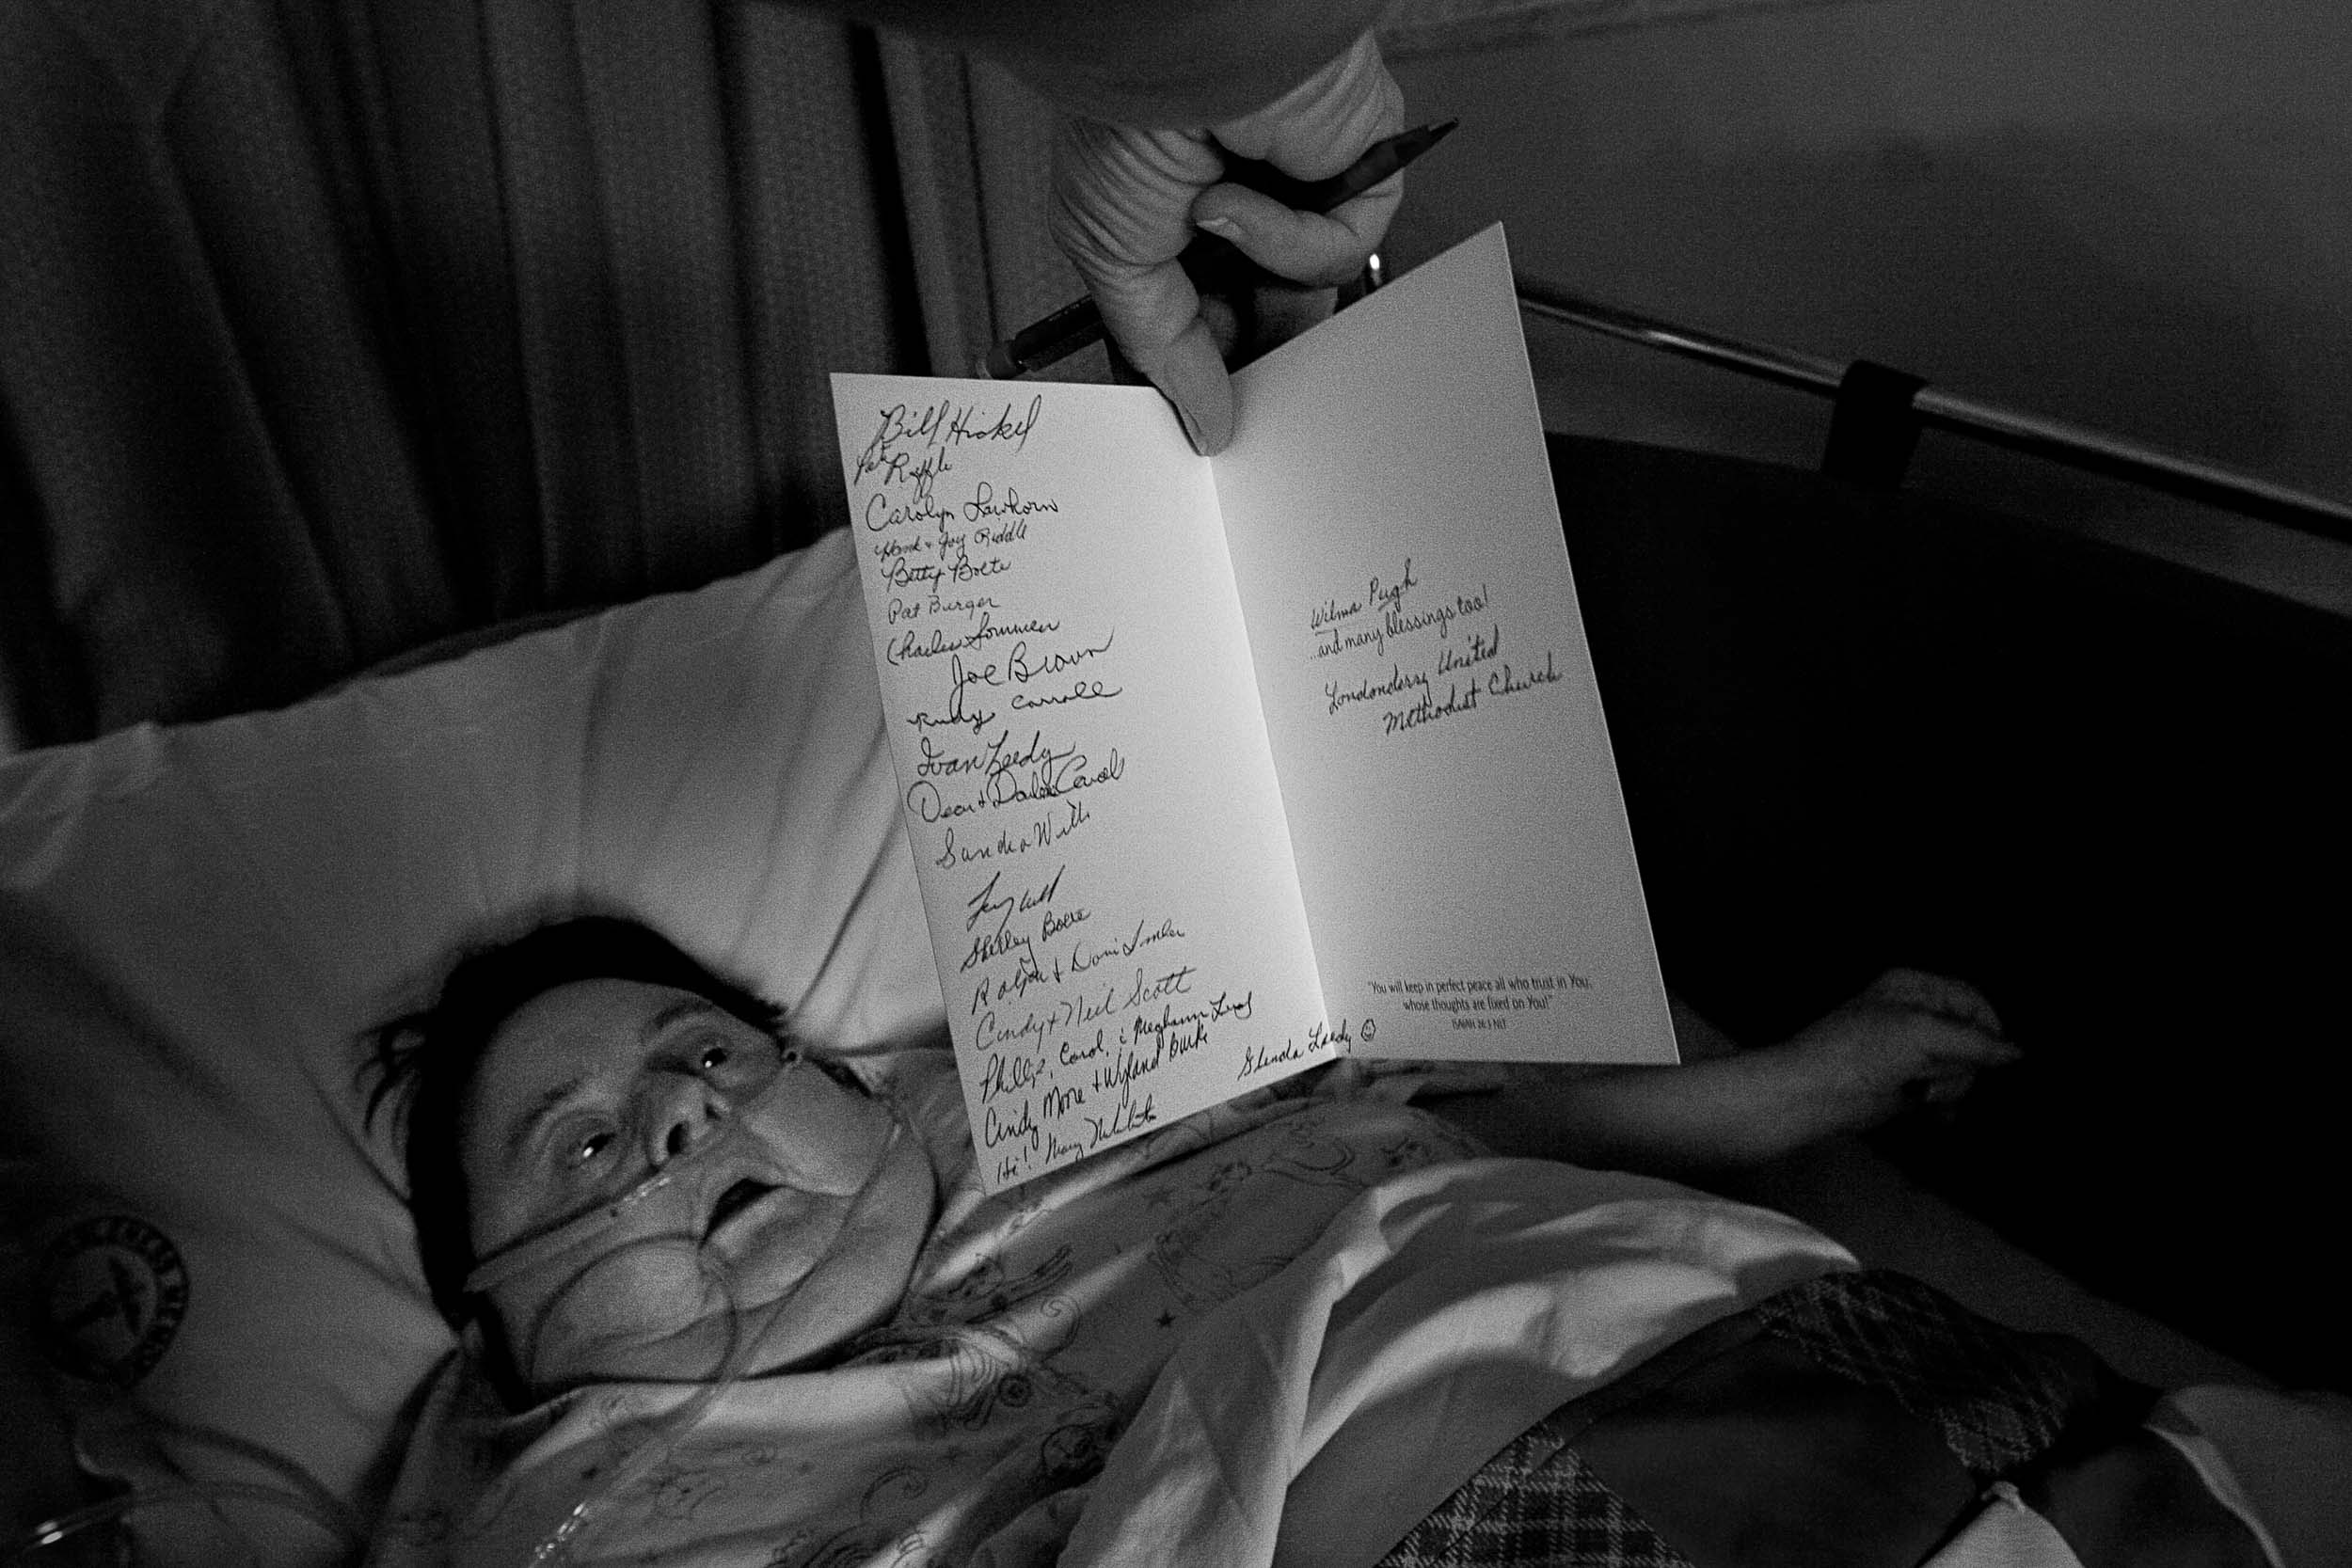 Bill Hickel
Pat Riffle
Carolyn Lawhorn
Hank & Joy Riddle
Betty Bolte
Pat Burger
Charles Sommer
Joe Brown
Rudy Carroll
Ivan Leedy
Dean &
Sandra Wills
Shirley Bolte
Ralph &
Cindy & Neil Scott
Phillip, Carol, & Meghann
Cindy Moore & Wyland Burke
Hi! Mary
Glenda Leedy ☺
Wilma Pugh
...and many blessings too!
Londonderry United
Methodist Church
"You will keep in perfect peace all who trust in You,
whose thoughts are fixed on You!"
ISAIAH 26:3 NLT